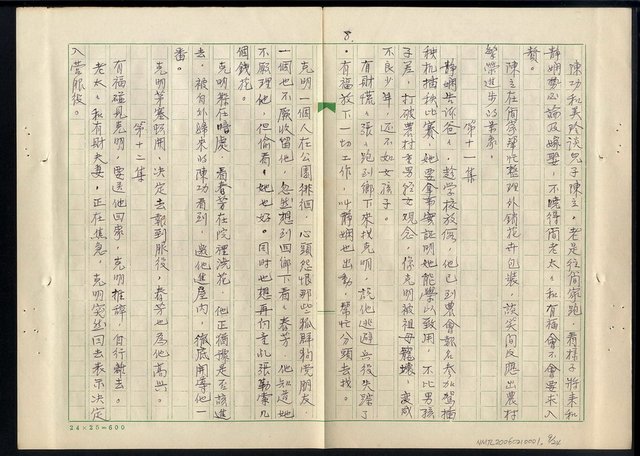 8.
陳功和美玲談兒子陳立,老是往簡家跑,看樣子將來和
靜嫻勢必論及嫁娶,不曉得簡老太、和有福會不會要求入
贅。
陳立在簡家幫忙整理外銷花卉包裝,談笑間反應出農村
繁榮進步的景象。
第十一集
靜嫻告訴爸、,趁學校放假,她已到農會報名參加駕插
秧机插秧比賽,她要拿事實証明她能學以致用,不比男孩
子差,打破農村重男輕女觀念,像克明被祖母寵壞,變成
不良少年,還不如女孩子。
有財慌、張、跑到鄉下來找克明,說他逃避兵役失踪了
。有福放下一切工作,叫靜嫻也出動,幫忙分頭去找。
克明一個人在公園徘徊,心頭怨恨那些狐群狗黨朋友,
一個也不願收留他,忽然想到回鄉下看、春芳,他知道她
不願理他,但偷看、她也好。同時也想再向童乩張勒索几
個錢花。
克明躲在暗處,看春芳在院裡澆花,他正猶豫是否該進
去,被自外歸來的陳功看到,邀他進屋內,徹底開導他一
番。
克明茅塞頓開,決定去報到服役,春芳也為他高興。
第十二集
有福碰見克明,要送他回家,克明推辭,自行離去。
老太、和有財夫妻,正在焦急,克明突然回去表示決定
入營服役。
24×25=600
NMTL20060210001